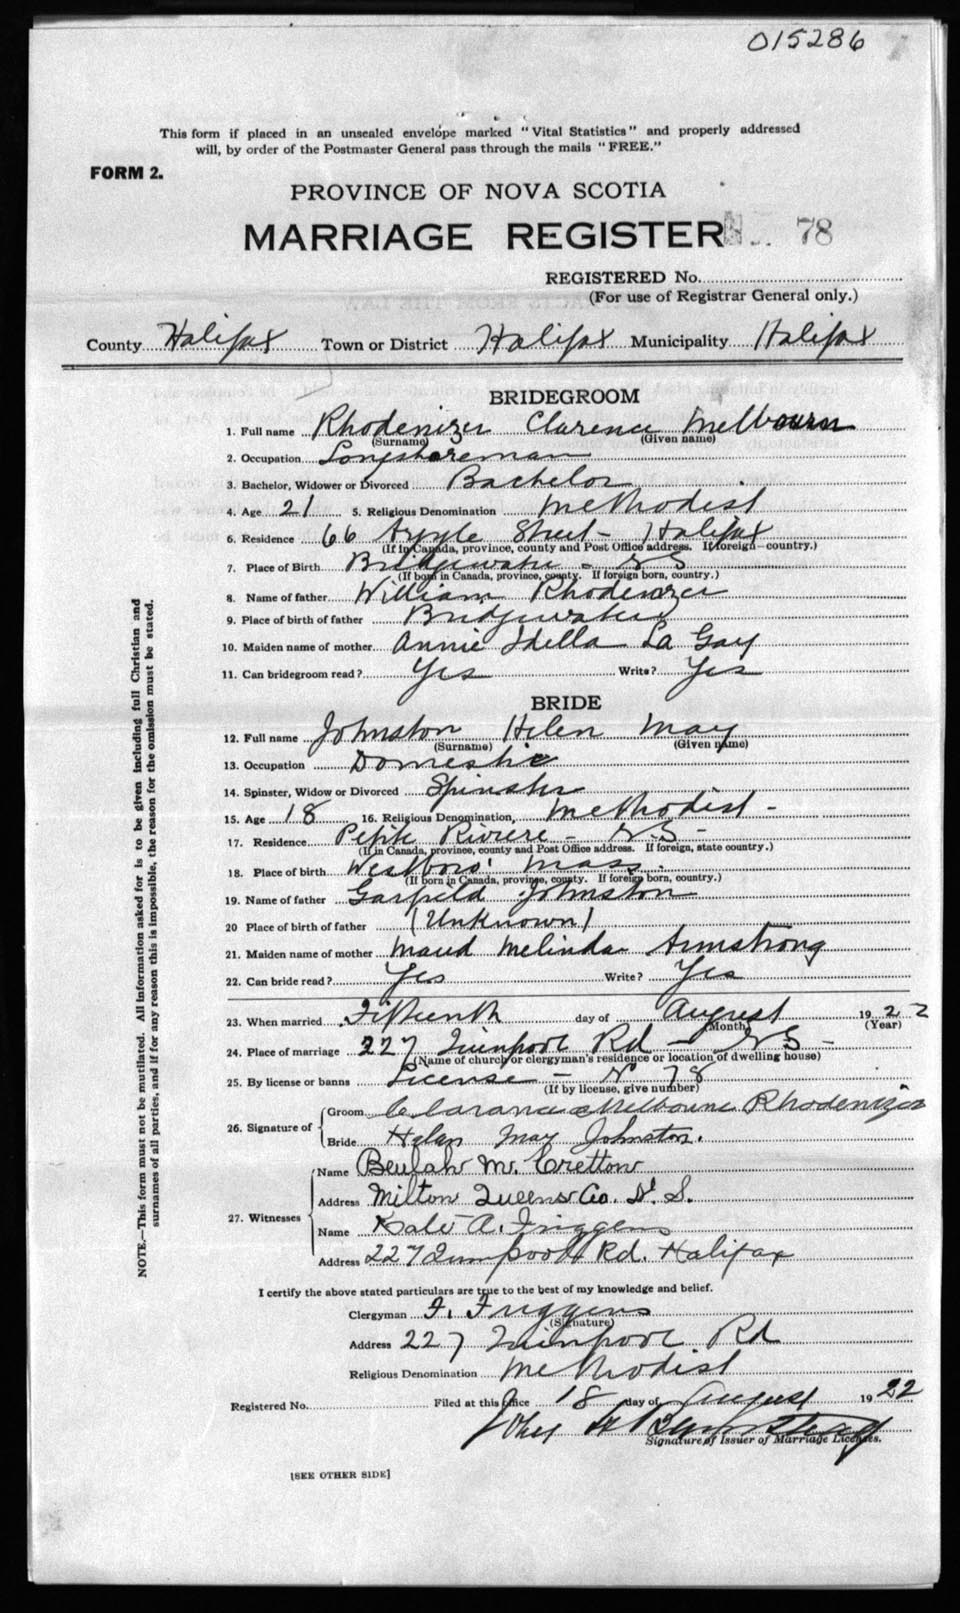 015286
This form if placed in an unsealed envelope marked "Vital Statistics" and properly addressed
will, by order of the Postmaster General pass through the mails "FREE."
FORM 2.
PROVINCE OF NOVA SCOTIA
MARRIAGE REGISTER 78
REGISTERED No.
(For use of Registrar General only.)
County Halifax Town or District Halifax Municipality Halifax
BRIDEGROOM
1. Full name Rhodenizer Clarence Melbourn
(Surname) (Given name)
2. Occupation Longshoreman
3. Bachelor, Widower or Divorced Bachelor
4. Age 21 5. Religious Denomination Methodist
6. Residence 66 Argyle Street - Halifax
(If in Canada, province, county and Post Office address. If foreign country.)
7. Place of Birth Bridgewater - N S
(If born in Canada, province, county. If foreign born, country.)
8. Name of father William Rhodenizer
9. Place of birth of father Bridgewater
10. Maiden name of mother Annie Idella La Gay
11. Can bridegroom read? Yes Write? Yes
BRIDE
12. Full name Johnston Helen May
(Surname) (Given name)
13. Occupation Domestic
14. Spinster, Widow or Divorced Spinster
15. Age 18 16. Religious Denomination, Methodist -
17. Residence Petite Riviere - N.S -
(If in Canada, province, county and Post Office address. If foreign, state country.)
18. Place of birth Westboro' Mass.
(If born in Canada, province, county. If foreign born, country.)
19. Name of father Garfield Johnston
20 Place of birth of father (Unknown)
21. Maiden name of mother Maud Melinda Armstrong
22. Can bride read? Yes Write? Yes
23. When married Fifteenth day of August 1922
(Month) (Year)
24. Place of marriage 227 Quinpool Rd - N S -
(Name of church or clergyman's residence or location of dwelling house)
25. By license or banns License - No 78
(If by license, give number)
26. Signature of
Groom Clarance Melbourne Rhodenizer
Bride Helen May Johnston.
27. Witnesses
Name Beulah M. Cretton
Address Milton Queens Co. N. S.
Name A. Friggens
Address 227 Quinpool Rd. Halifax
I certify the above stated particulars are true to the best of my knowledge and belief.
Clergyman F. Friggens
(Signature)
Address 227 Quinpool Rd
Religious Denomination Methodist
Registered No. Filed at this office 18 day of August 1922
Signature of Issuer of Marriage Licenses.
[SEE OTHER SIDE]
NOTE.—This form must not be mutilated. All information asked for is to be given including full Christian and
surnames of all parties, and if for any reason this is impossible, the reason for the omission must be stated.